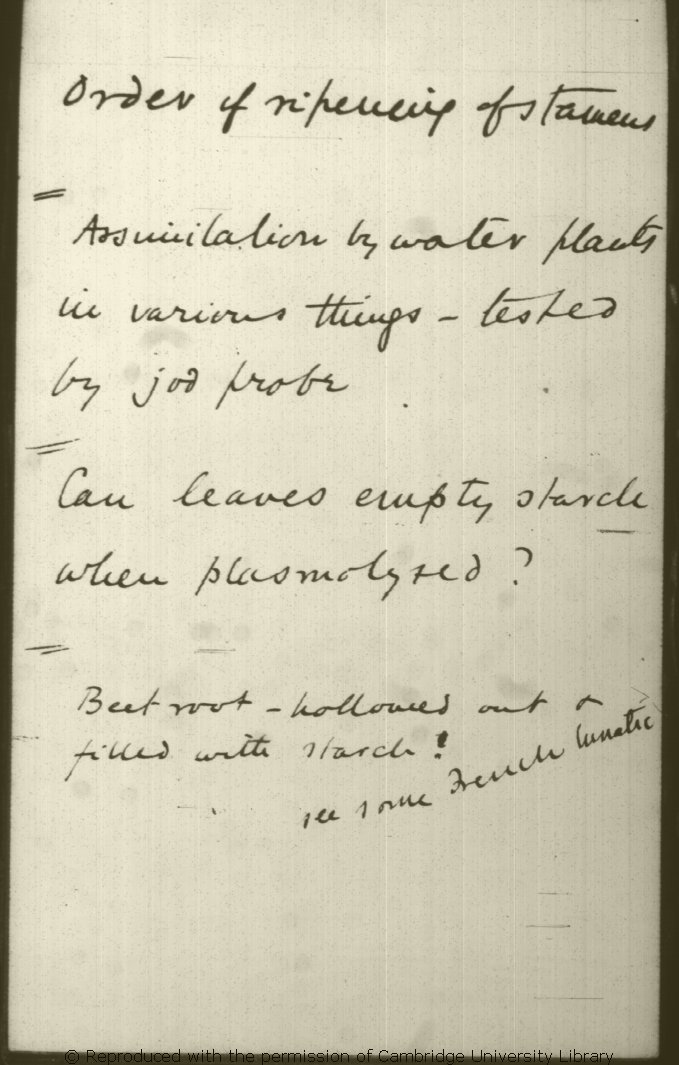 Order of ripening of stamens
Assimilation by water plants
in various things – tested
by jod probe
Can leaves empty starch
when plasmolysed?
Beet root – hollowed out &
filled with starch!
see some French lunatic
© Reproduced with the permission of Cambridge University Library